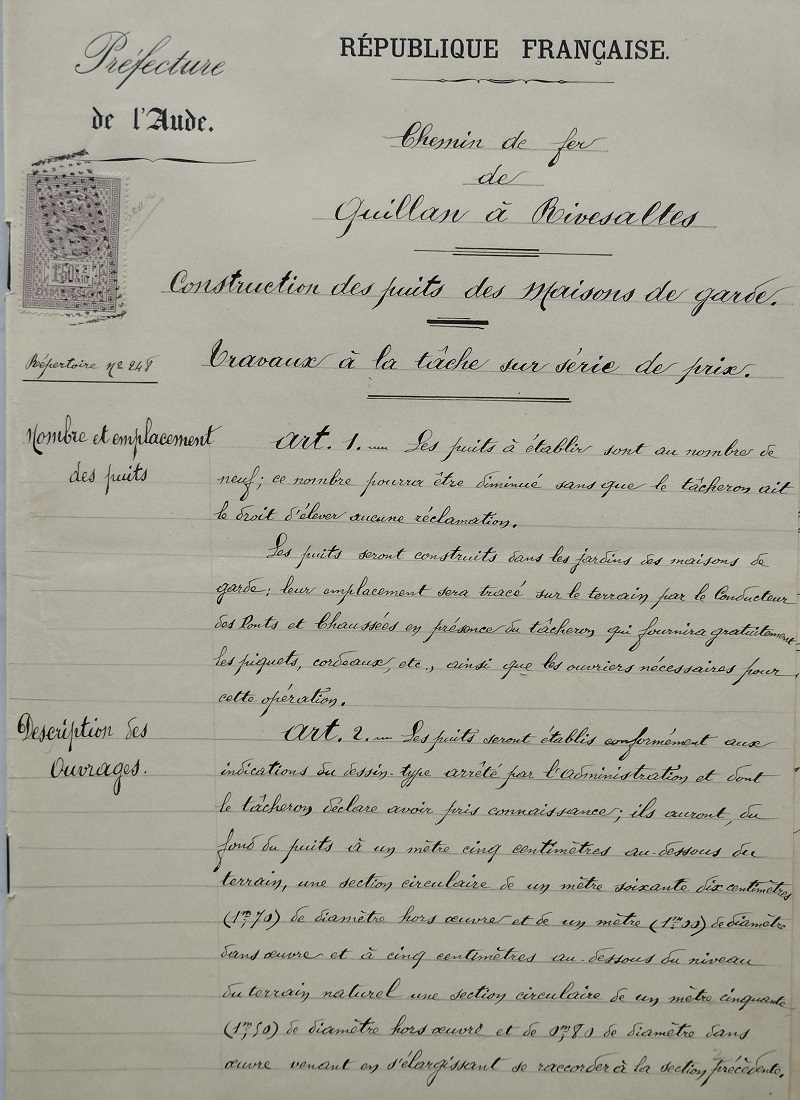 Préfecture
de l'Aude.
RÉPUBLIQUE FRANÇAISE.
Chemin de fer
de
Quillan à Rivesaltes
Construction des puits des Maisons de garde.
Répertoire nº 248
Travaux à la tâche sur série de prix.
Nombre et emplacement
des puits
Art. 1. — Les puits à établir sont au nombre de
neuf; ce nombre pourra être diminué sans que le tâcheron ait
le droit d'élever aucune réclamation.
Les puits seront construits dans les jardins des maisons de
garde; leur emplacement sera tracé sur le terrain par le Conducteur
des Ponts et Chaussées en présence du tâcheron qui fournira gratuitement
les piquets, cordeaux, etc., ainsi que les ouvriers nécessaires pour
cette opération.
Description des
Ouvrages.
Art. 2. — Les puits seront établis conformément aux
indications du dessin-type arrêté par l'administration et dont
le tâcheron déclare avoir pris connaissance; ils auront, du
fond du puits à un mètre cinq centimètres au-dessous du
terrain, une section circulaire de un mètre soixante dix centimètres
(1m,70) de diamètre hors œuvre et de un mètre (1m,00) de diamètre
dans œuvre et à cinq centimètres au-dessous du niveau
du terrain naturel une section circulaire de un mètre cinquante
(1m,50) de diamètre hors œuvre et de 0m,80 de diamètre dans
œuvre venant en s'élargissant se raccorder à la section précédente.